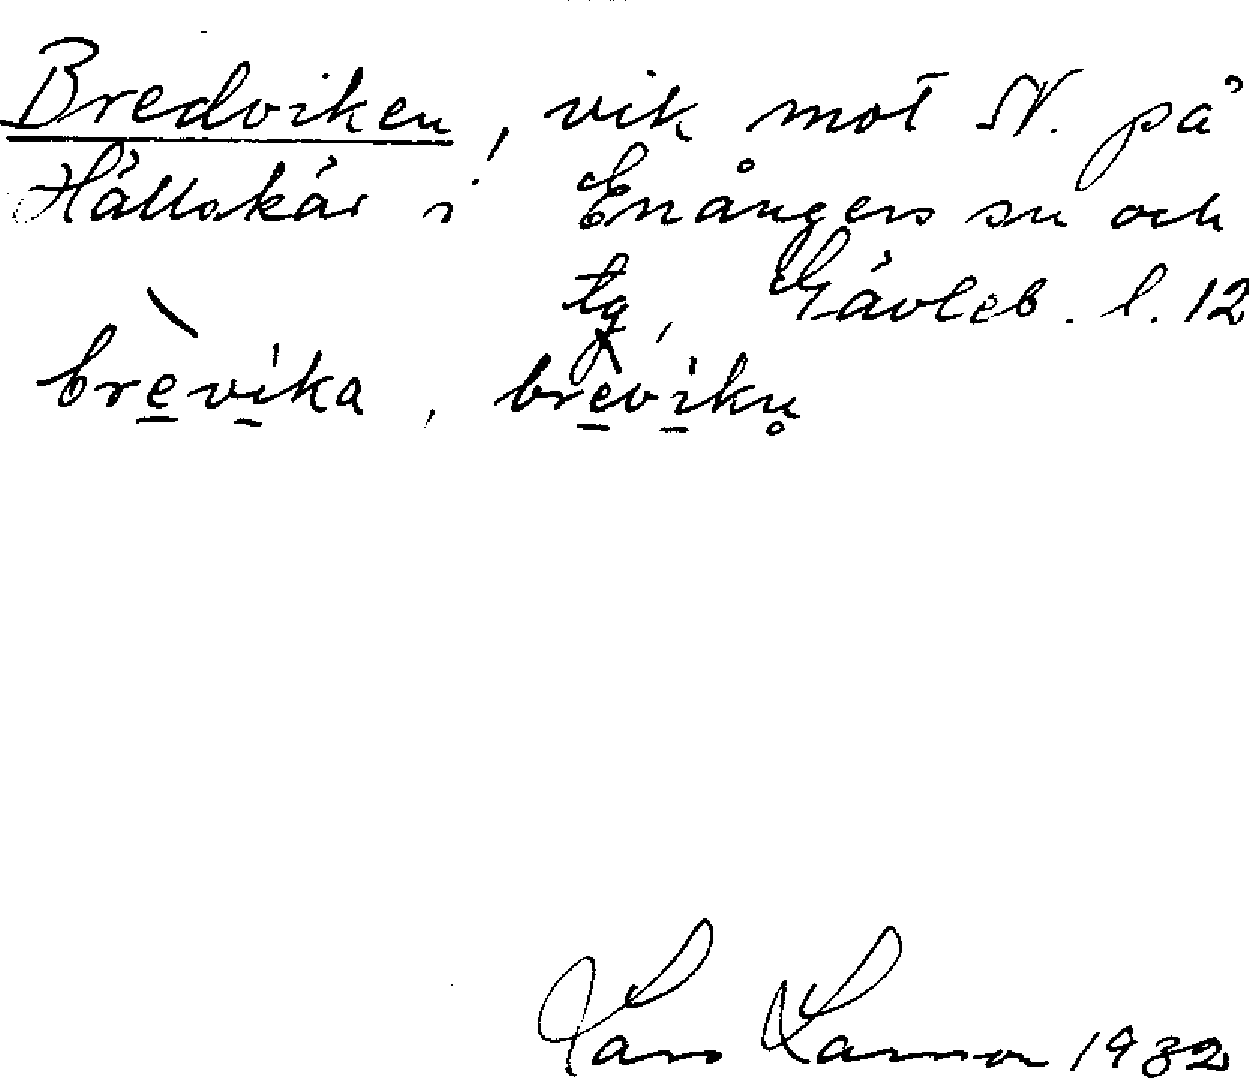 Bredviken, vik mot N. på
Hällskär i Enångers sn och
tg, Gävleb. l. 12
brèvika, brèvikn̥
Lars Larsson 1932